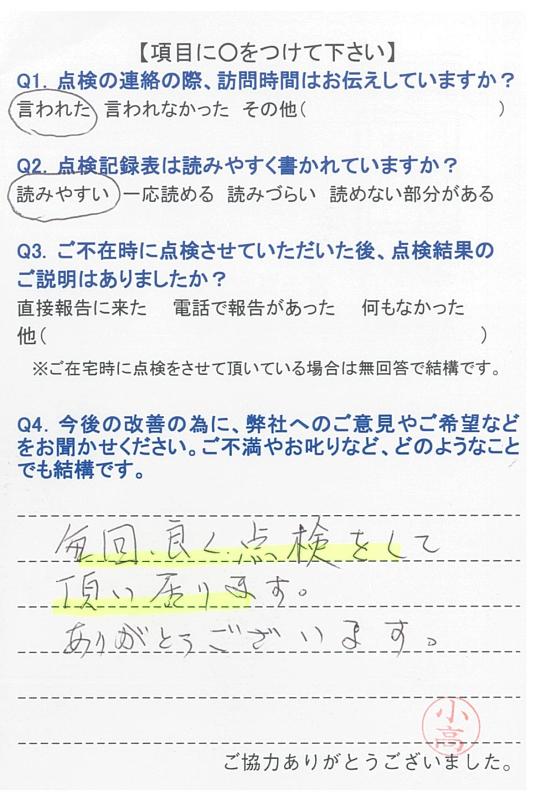 【項目に○をつけて下さい】
Q1. 点検の連絡の際、訪問時間はお伝えしていますか？
言われた 言われなかった その他( )
Q2. 点検記録表は読みやすく書かれていますか？
読みやすい 一応読める 読みづらい 読めない部分がある
Q3. ご不在時に点検させていただいた後、点検結果の
ご説明はありましたか？
直接報告に来た 電話で報告があった 何もなかった
他( )
※ご在宅時に点検をさせて頂いている場合は無回答で結構です。
Q4. 今後の改善の為に、弊社へのご意見やご希望など
をお聞かせください。ご不満やお叱りなど、どのようなこと
でも結構です。
毎回、良く点検をして
頂い居ります。
ありがとうございます。
小高
ご協力ありがとうございました。